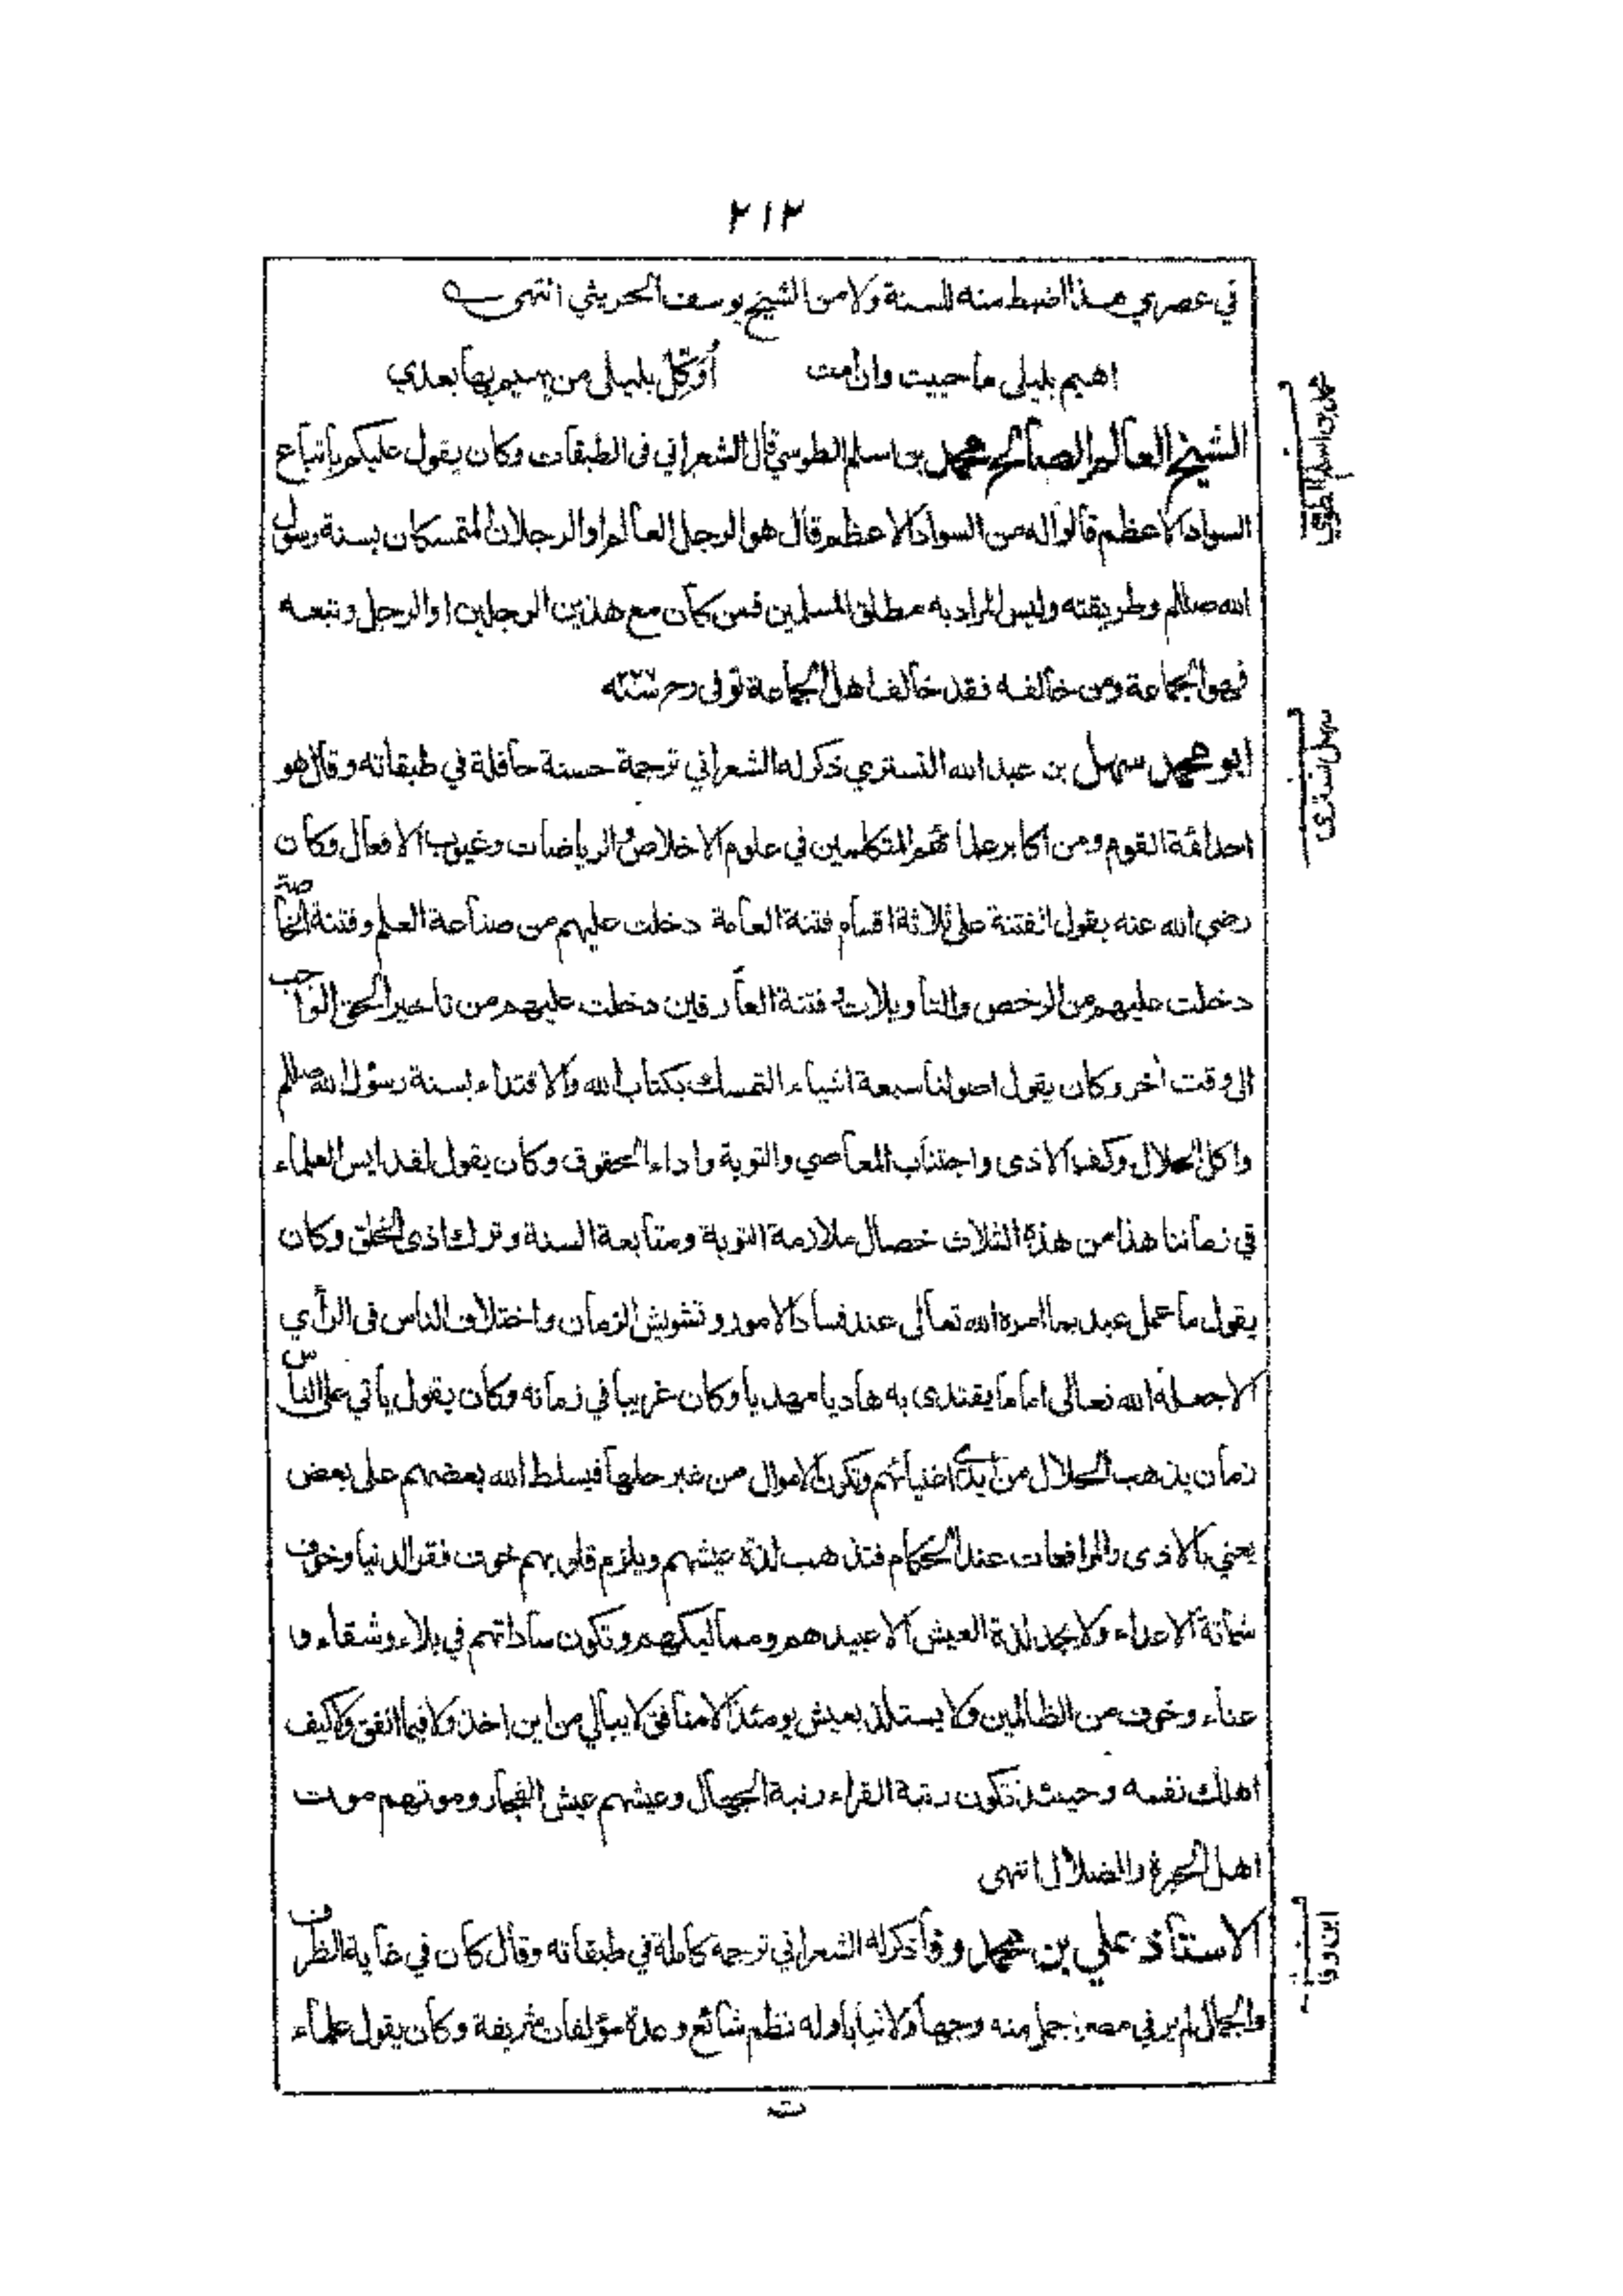 ٢١٢
في عصري هذا اضبط منه للسنة ولا من الشيخ يوسف الحريثي انتهى
اهيم بليلى ما حييت وان امت أُوَكِّلْ بليلى من يهيم بها بعدي
الشيخ العالم الصالح محمد بن اسلم الطوسي قال الشعراني فى الطبقات وكان يقول عليكم باتباع
السواد الاعظم قالوا له من السواد الاعظم قال هو الرجل العالم او الرجلان المتمسكان بسنة رسول
الله صللم وطريقته وليس المراد به مطلق المسلمين فمن كان مع هذين الرجلين او الرجل وتبعه
فهو الجماعة ومن خالفه فقد خالف اهل الجماعة توفى رح
ابو محمد سهل بن عبد الله التستري ذكر له الشعراني ترجمة حسنة حافلة في طبقاته وقال هو
احد ائمة القوم ومن اكابر علمائهم المتكلمين في علوم الاخلاص والرياضات وعيوب الافعال وكان
رضي الله عنه يقول الفتنة على ثلاثة اقسام فتنة العامة دخلت عليهم من صناعة العلم وفتنة الخاصة
دخلت عليهم من الرخص والتاويلات وفتنة العارفين دخلت عليهم من تاخير الحق الواجب
الى وقت اخر وكان يقول اصولنا سبعة اشياء التمسك بكتاب الله والاقتداء بسنة رسول الله صللم
واكل الحلال وكف الاذى واجتناب المعاصي والتوبة واداء الحقوق وكان يقول لقد ايس العلماء
في زماننا هذا من هذة الثلاث خصال ملازمة التوبة ومتابعة السنة وترك اذى الخلق وكان
يقول ما عمل عبد بما امره الله تعالى عند فساد الامور وتشويش الزمان واختلاف الناس فى الرأي
الا جعله الله تعالى اماما يقتدى به هاديا مهديا وكان غريبا في زمانه وكان يقول ياتي على الناس
زمان يذهب الحلال من ايدي اغنيائهم وتكون الاموال من غير حلها فيسلط الله بعضهم على بعض
يعني بالاذى والمرافعات عند الحكام فتذهب لذة عيشهم ويلزم قلوبهم خوف فقر الدنيا وخوف
شماتة الاعداء ولا يجد لذة العيش الا عبيدهم ومماليكهم وتكون ساداتهم في بلاء وشقاء و
عناء وخوف من الظالمين ولا يستلذ بعيش يومئذ الا منافق لا يبالي من اين اخذ ولا فيما انفق ولا كيف
اهلك نفسه وحينئذ تكون رتبة القراء رتبة الجهال وعيشهم عيش الفجار وموتهم موت
اهل الحيرة والضلال انتهى
الاستاذ علي بن محمد وفا ذكر له الشعراني ترجمه كاملة في طبقاته وقال كان في غاية الظرف
والجمال لم ير في مصر اجمل منه وجها ولا ثيابا وله نظم شائع وعدة مؤلفات شريفة وكان يقول علماء
محمد بن اسلم الطوسي
سهل تستري
ابن وفا